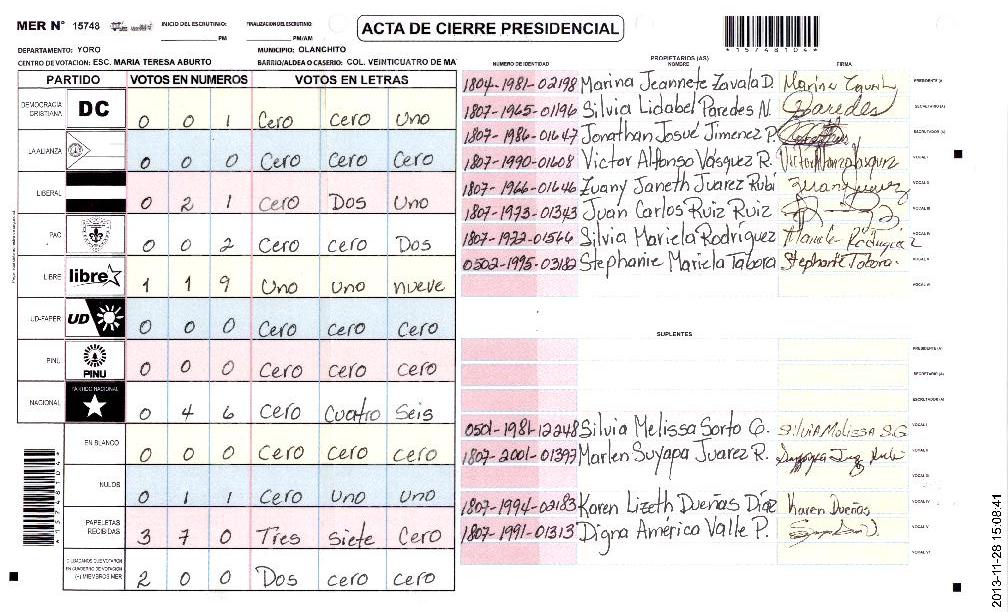 MER N° 15748
INICIO DEL ESCRUTINIO: PM
FINALIZACION DEL ESCRUTINIO PM/AM
ACTA DE CIERRE PRESIDENCIAL
*15748104*
DEPARTAMENTO: YORO
MUNICIPIO: OLANCHITO
CENTRO DE VOTACION: ESC. MARIA TERESA ABURTO
BARRIO/ALDEA O CASERIO: COL. VEINTICUATRO DE MA
PARTIDO VOTOS EN NUMEROS VOTOS EN LETRAS
DEMOCRACIA CRISTIANA DC 0 0 1 Cero cero uno
LA ALIANZA 0 0 0 Cero Cero Cero
LIBERAL 0 2 1 Cero Dos Uno
PAC 0 0 2 Cero cero Dos
LIBRE libre 1 1 9 Uno uno nueve
UD-FAPER UD 0 0 0 Cero cero cero
PINU PINU 0 0 0 Cero cero cero
NACIONAL PARTIDO NACIONAL 0 4 6 Cero Cuatro Seis
EN BLANCO 0 0 0 Cero cero cero
NULOS 0 1 1 Cero uno uno
PAPELETAS RECIBIDAS 3 7 0 Tres Siete Cero
CIUDADANOS QUE VOTARON EN CUADERNO DE VOTACION (+) MIEMBROS MER 2 0 0 Dos cero cero
*15748104*
PROPIETARIOS (AS)
NUMERO DE IDENTIDAD NOMBRE FIRMA
1804-1981-02198 Marina Jeannete Zavala D. PRESIDENTE (A)
1807-1965-01196 Silvia Lidabel Paredes N. Paredes SECRETARIO (A)
1807-1986-01647 Jonathan Josué Jimenez P. ESCRUTADOR (A)
1807-1990-01608 Victor Alfonso Vásquez R. VOCAL I
1807-1966-01646 Zuany Janeth Juarez Rubi VOCAL II
1807-1973-01343 Juan Carlos Ruiz Ruiz VOCAL III
1807-1972-01566 Silvia Mariela Rodríguez Mariela Rodriguez VOCAL IV
0502-1995-03182 Stephanie Mariela Tabora Stephanie Tabora. VOCAL V
VOCAL VI
SUPLENTES
PRESIDENTE (A)
SECRETARIO (A)
ESCRUTADOR (A)
0501-1981-12248 Silvia Melissa Sorto G. SILVIA MELISSA S.G VOCAL I
1807-2001-01397 Marlen Suyapa Juarez R. VOCAL II
VOCAL III
1807-1994-02183 Karen Lizeth Dueñas Díaz Karen Dueñas VOCAL IV
1807-1991-01313 Digna América Valle P. VOCAL V
VOCAL VI
2013-11-28 15:08:41